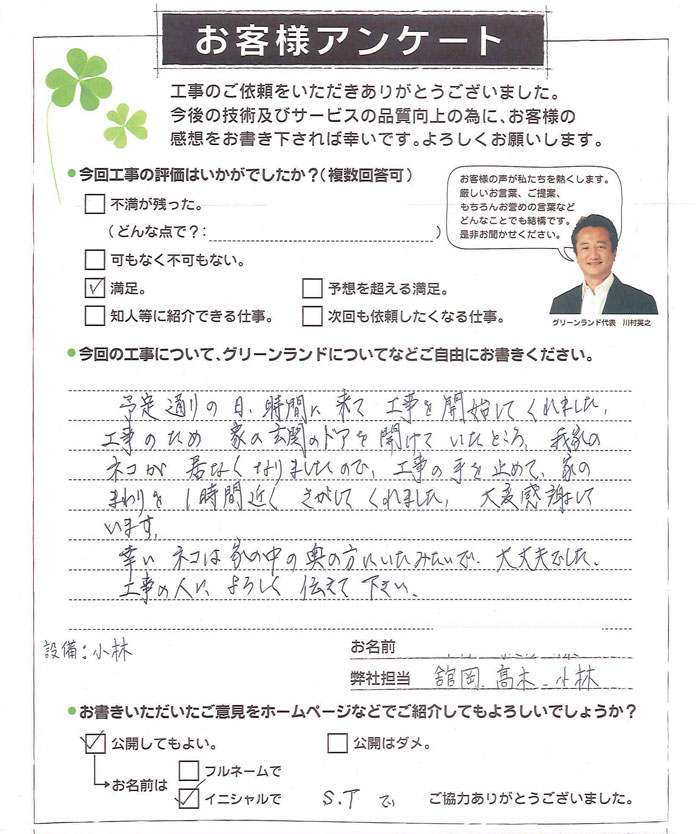 お客様アンケート
工事のご依頼をいただきありがとうございました。
今後の技術及びサービスの品質向上の為に、お客様の
感想をお書き下されば幸いです。よろしくお願いします。
●今回工事の評価はいかがでしたか？（複数回答可）
不満が残った。
（どんな点で？：）
可もなく不可もない。
満足。
予想を超える満足。
知人等に紹介できる仕事。
次回も依頼したくなる仕事。
お客様の声が私たちを熱くします。
厳しいお言葉、ご提案、
もちろんお誉めの言葉など
どんなことでも結構です。
是非お聞かせください。
グリーンランド代表 川村英之
●今回の工事について、グリーンランドについてなどご自由にお書きください。
予定通りの日、時間に来て工事を開始してくれました。
工事のため家の玄関のドアを開けていたところ、我家の
ネコが居なくなりましたので、工事の手を止めて、家の
まわりを1時間近くさがしてくれました。大変感謝して
います。
幸いネコは家の中の奥の方にいたみたいで、大丈夫でした。
工事の人によろしく伝えて下さい。
設備：小林
お名前
弊社担当 舘岡、高木、小林
●お書きいただいたご意見をホームページなどでご紹介してもよろしいでしょうか？
公開してもよい。
公開はダメ。
お名前は
フルネームで
イニシャルで S.T で
ご協力ありがとうございました。